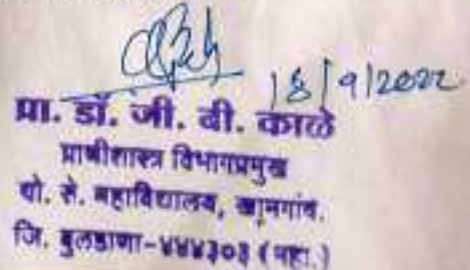 18/9/2022
प्रा. डॉ. जी. बी. काळे
प्राणीशास्त्र विभागप्रमुख
गो. से. महाविद्यालय, खामगांव.
जि. बुलडाणा-४४४३०३ (महा.)